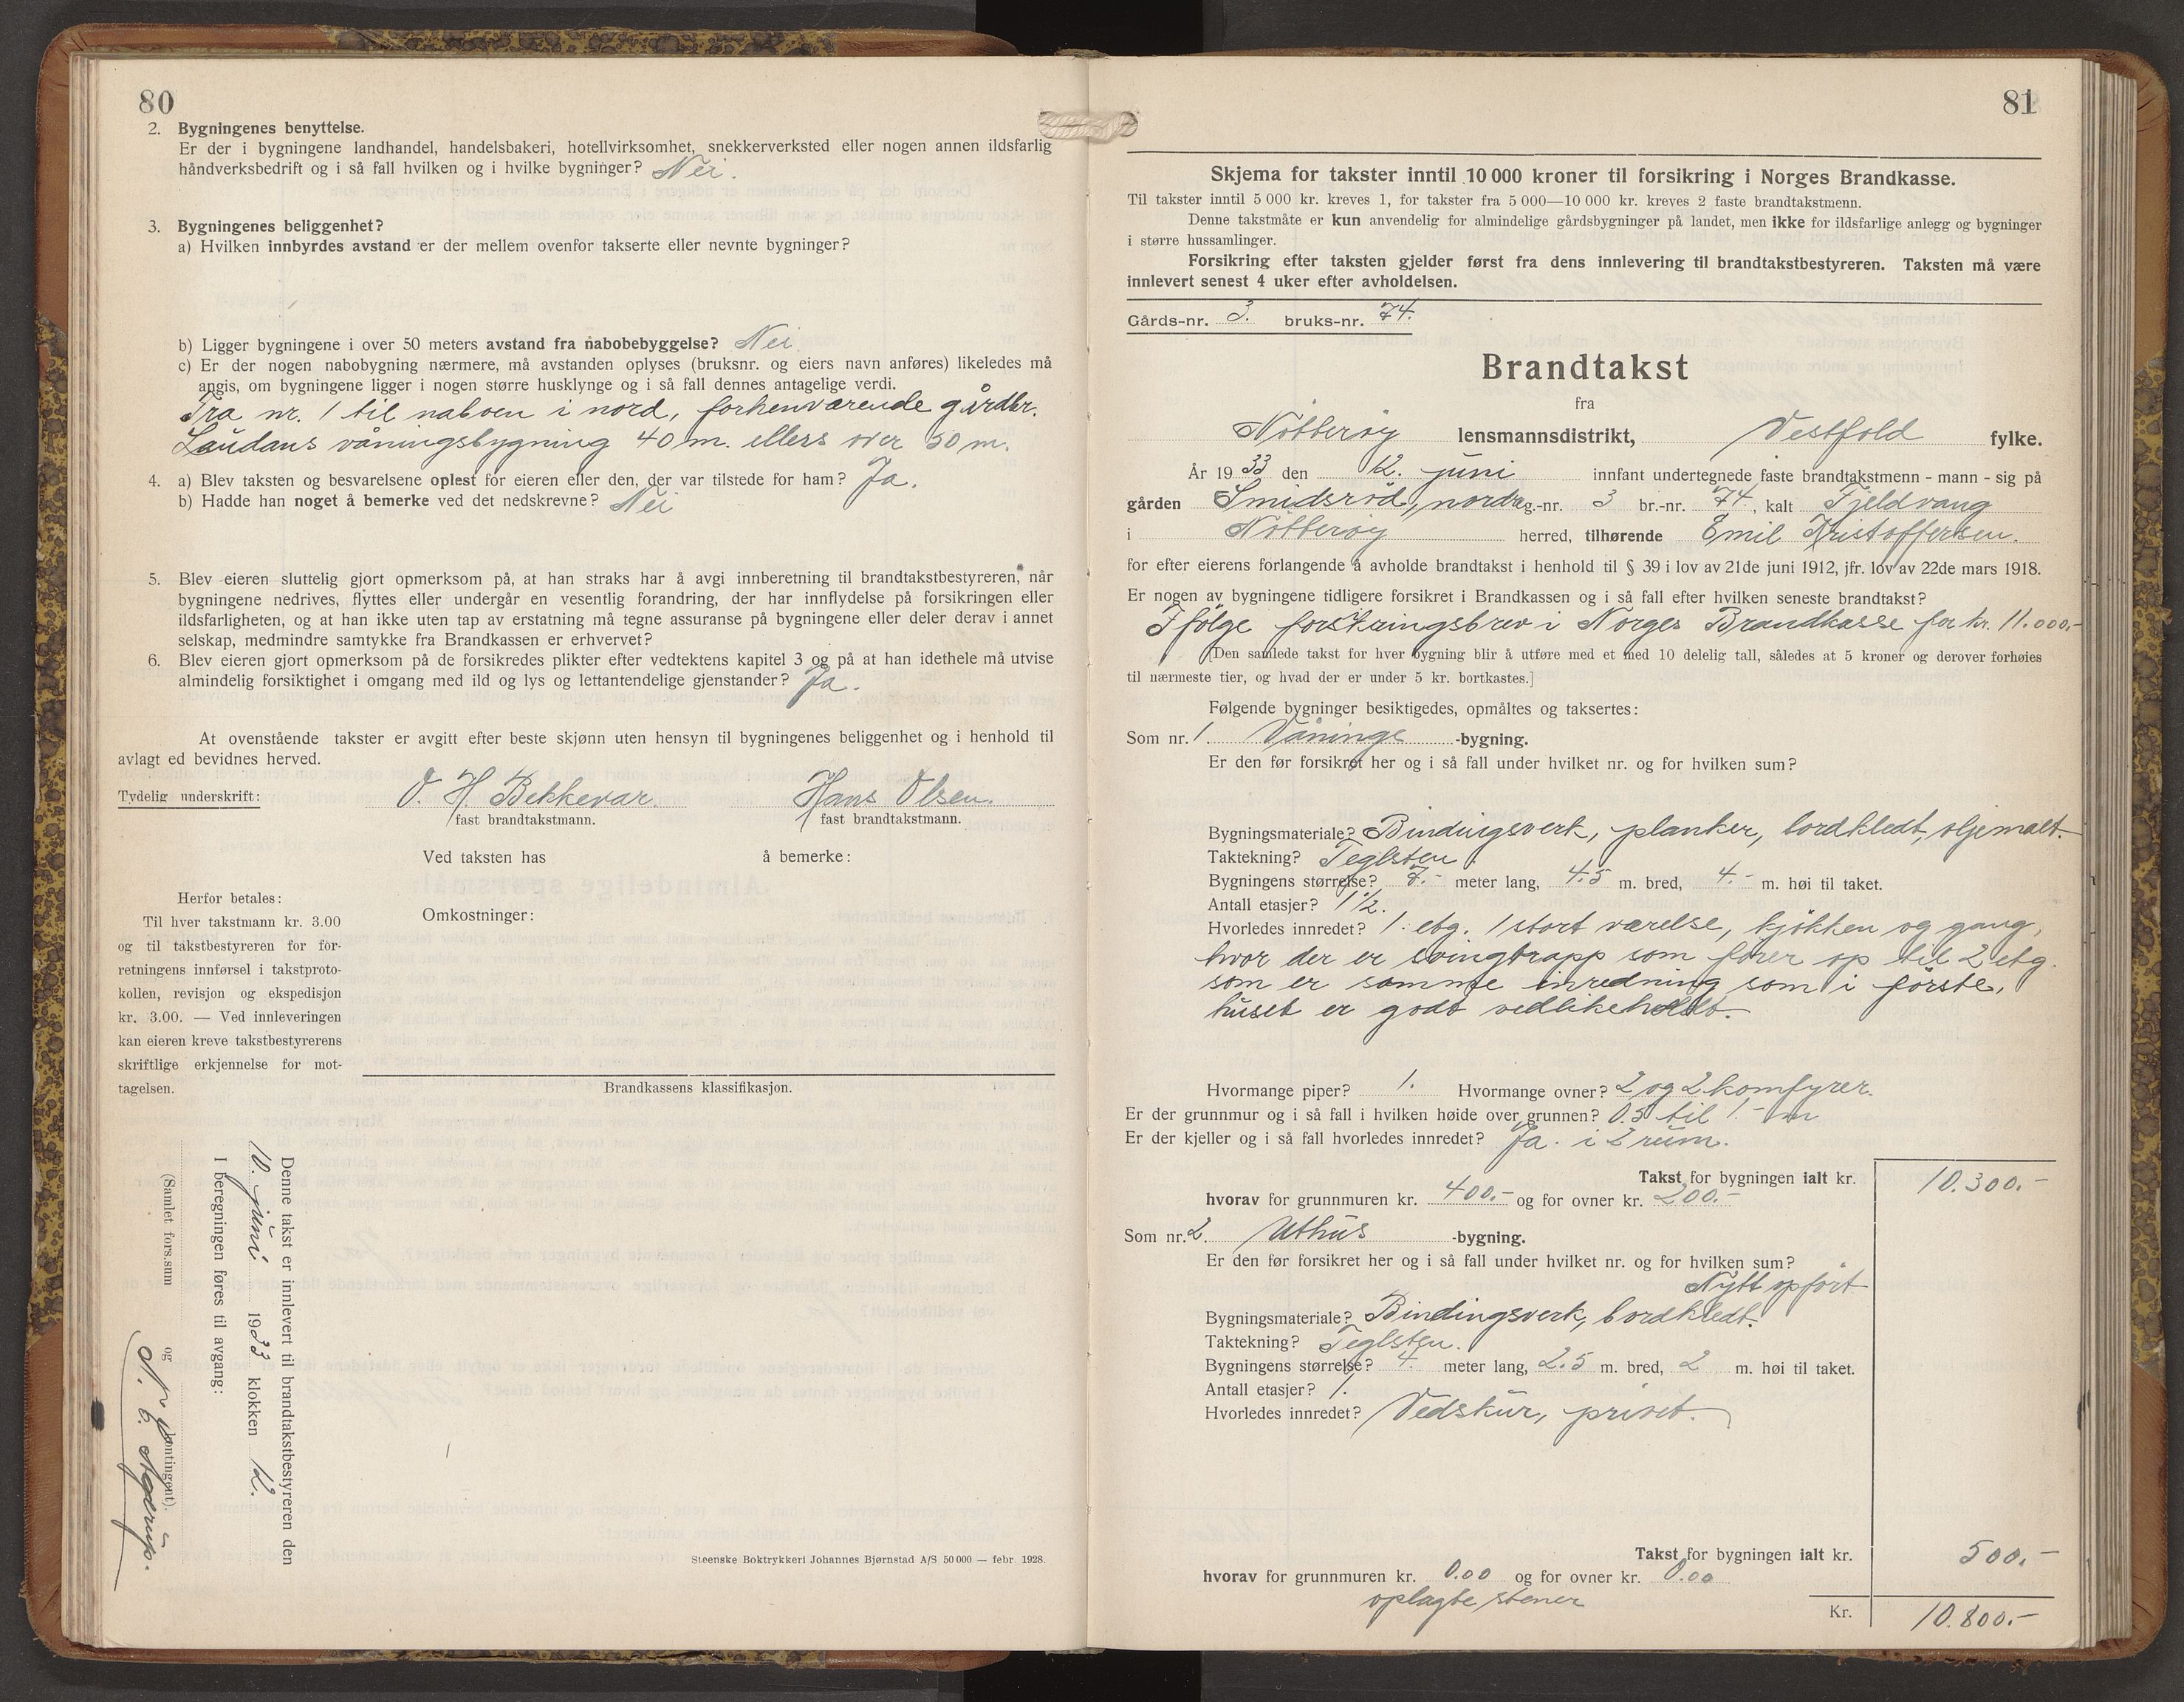 80
2. Bygningenes benyttelse.
Er der i bygningene landhandel, handelsbakeri, hotellvirksomhet, snekkerverksted eller nogen annen ildsfarlig
håndverksbedrift og i så fall hvilken og i hvilke bygninger? Nei.
3. Bygningenes beliggenhet?
a) Hvilken innbyrdes avstand er der mellem ovenfor takserte eller nevnte bygninger?
b) Ligger bygningene i over 50 meters avstand fra nabobebyggelse? Nei
c) Er der nogen nabobygning nærmere, må avstanden oplyses (bruksnr. og eiers navn anføres) likeledes må
angis, om bygningene ligger i nogen større husklynge og i så fall dennes antagelige verdi.
Fra nr. 1 til naboen i nord, forhenværende gårdbr.
Laudans våningsbygning 40 m. ellers over 50 m.
4. a) Blev taksten og besvarelsene oplest for eieren eller den, der var tilstede for ham? Ja.
b) Hadde han noget å bemerke ved det nedskrevne? Nei
5. Blev eieren sluttelig gjort opmerksom på, at han straks har å avgi innberetning til brandtakstbestyreren, når
bygningene nedrives, flyttes eller undergår en vesentlig forandring, der har innflydelse på forsikringen eller
ildsfarligheten, og at han ikke uten tap av erstatning må tegne assuranse på bygningene eller deler derav i annet
selskap, medmindre samtykke fra Brandkassen er erhvervet?
6. Blev eieren gjort opmerksom på de forsikredes plikter efter vedtektens kapitel 3 og på at han idethele må utvise
almindelig forsiktighet i omgang med ild og lys og lettantendelige gjenstander? Ja.
At ovenstående takster er avgitt efter beste skjønn uten hensyn til bygningenes beliggenhet og i henhold til
avlagt ed bevidnes herved.
Tydelig underskrift: O. H. Bekkevar. Hans Olsen.
fast brandtakstmann. fast brandtakstmann.
Ved taksten has å bemerke:
Herfor betales:
Til hver takstmann kr. 3.00
og til takstbestyreren for for-
retningens innførsel i takstproto-
kollen, revisjon og ekspedisjon
kr. 3.00. — Ved innleveringen
kan eieren kreve takstbestyrerens
skriftlige erkjennelse for mot-
tagelsen.
Omkostninger:
Brandkassens klassifikasjon.
Denne takst er innlevert til brandtakstbestyreren den
10. juni 1933 klokken 12.
I beregningen føres til avgang:
(Samlet fors.sum og kontingent).
Steenske Boktrykkeri Johannes Bjørnstad A/S 50 000 — febr. 1928.
81
Skjema for takster inntil 10 000 kroner til forsikring i Norges Brandkasse.
Til takster inntil 5 000 kr. kreves 1, for takster fra 5 000—10 000 kr. kreves 2 faste brandtakstmenn.
Denne takstmåte er kun anvendelig for almindelige gårdsbygninger på landet, men ikke for ildsfarlige anlegg og bygninger
i større hussamlinger.
Forsikring efter taksten gjelder først fra dens innlevering til brandtakstbestyreren. Taksten må være
innlevert senest 4 uker efter avholdelsen.
Gårds-nr. 3. bruks-nr. 74.
Brandtakst
fra
Nøtterøy lensmannsdistrikt, Vestfold fylke.
År 1933 den 12. juni innfant undertegnede faste brandtakstmenn - mann - sig på
gården Smidsrød, nordre g.-nr. 3 br.-nr. 74, kalt Fjeldvang
i Nøtterøy herred, tilhørende Emil Kristoffersen.
for efter eierens forlangende å avholde brandtakst i henhold til § 39 i lov av 21de juni 1912, jfr. lov av 22de mars 1918.
Er nogen av bygningene tidligere forsikret i Brandkassen og i så fall efter hvilken seneste brandtakst?
Ifølge forsikringsbrev i Norges Brandkasse for kr. 11.000.-
[Den samlede takst for hver bygning blir å utføre med et med 10 delelig tall, således at 5 kroner og derover forhøies
til nærmeste tier, og hvad der er under 5 kr. bortkastes.]
Følgende bygninger besiktigedes, opmåltes og taksertes:
Som nr. 1. Vånings -bygning.
Er den før forsikret her og i så fall under hvilket nr. og for hvilken sum?
Bygningsmateriale? Bindingsverk, planker, bordkledt, oljemalt.
Taktekning? Teglsten.
Bygningens størrelse? 7.- meter lang, 4.5 m. bred, 4.- m. høi til taket.
Antall etasjer? 1 1/2.
Hvorledes innredet? 1. etg. 1 stort værelse, kjøkken og gang,
hvor der er svingtrapp som fører op til 2 etg.
som er samme inredning som i første,
huset er godt vedlikeholdt.
Hvormange piper? 1. Hvormange ovner? 2 og 2 komfyrer.
Er der grunnmur og i så fall i hvilken høide over grunnen? 0.5 til 1.- m
Er der kjeller og i så fall hvorledes innredet? Ja. i 2 rum.
Takst for bygningen ialt kr. 10.300.-
hvorav for grunnmuren kr. 400.- og for ovner kr. 200.-
Som nr. 2. Uthus -bygning.
Er den før forsikret her og i så fall under hvilket nr. og for hvilken sum?
Nytt opført
Bygningsmateriale? Bindingsverk, bordkledt.
Taktekning? Teglsten.
Bygningens størrelse? 4. meter lang, 2.5 m. bred, 2 m. høi til taket.
Antall etasjer? 1.
Hvorledes innredet? Vedskur, privet.
Takst for bygningen ialt kr. 500.-
hvorav for grunnmuren kr. 0.00 og for ovner kr. 0.00
oplagte stener
Kr. 10.800.-